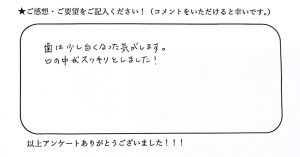 ★ご感想・ご要望をご記入ください！（コメントをいただけると幸いです。）
歯は少し白くなった気がします。
口の中がスッキリとしました！
以上アンケートありがとうございました！！！